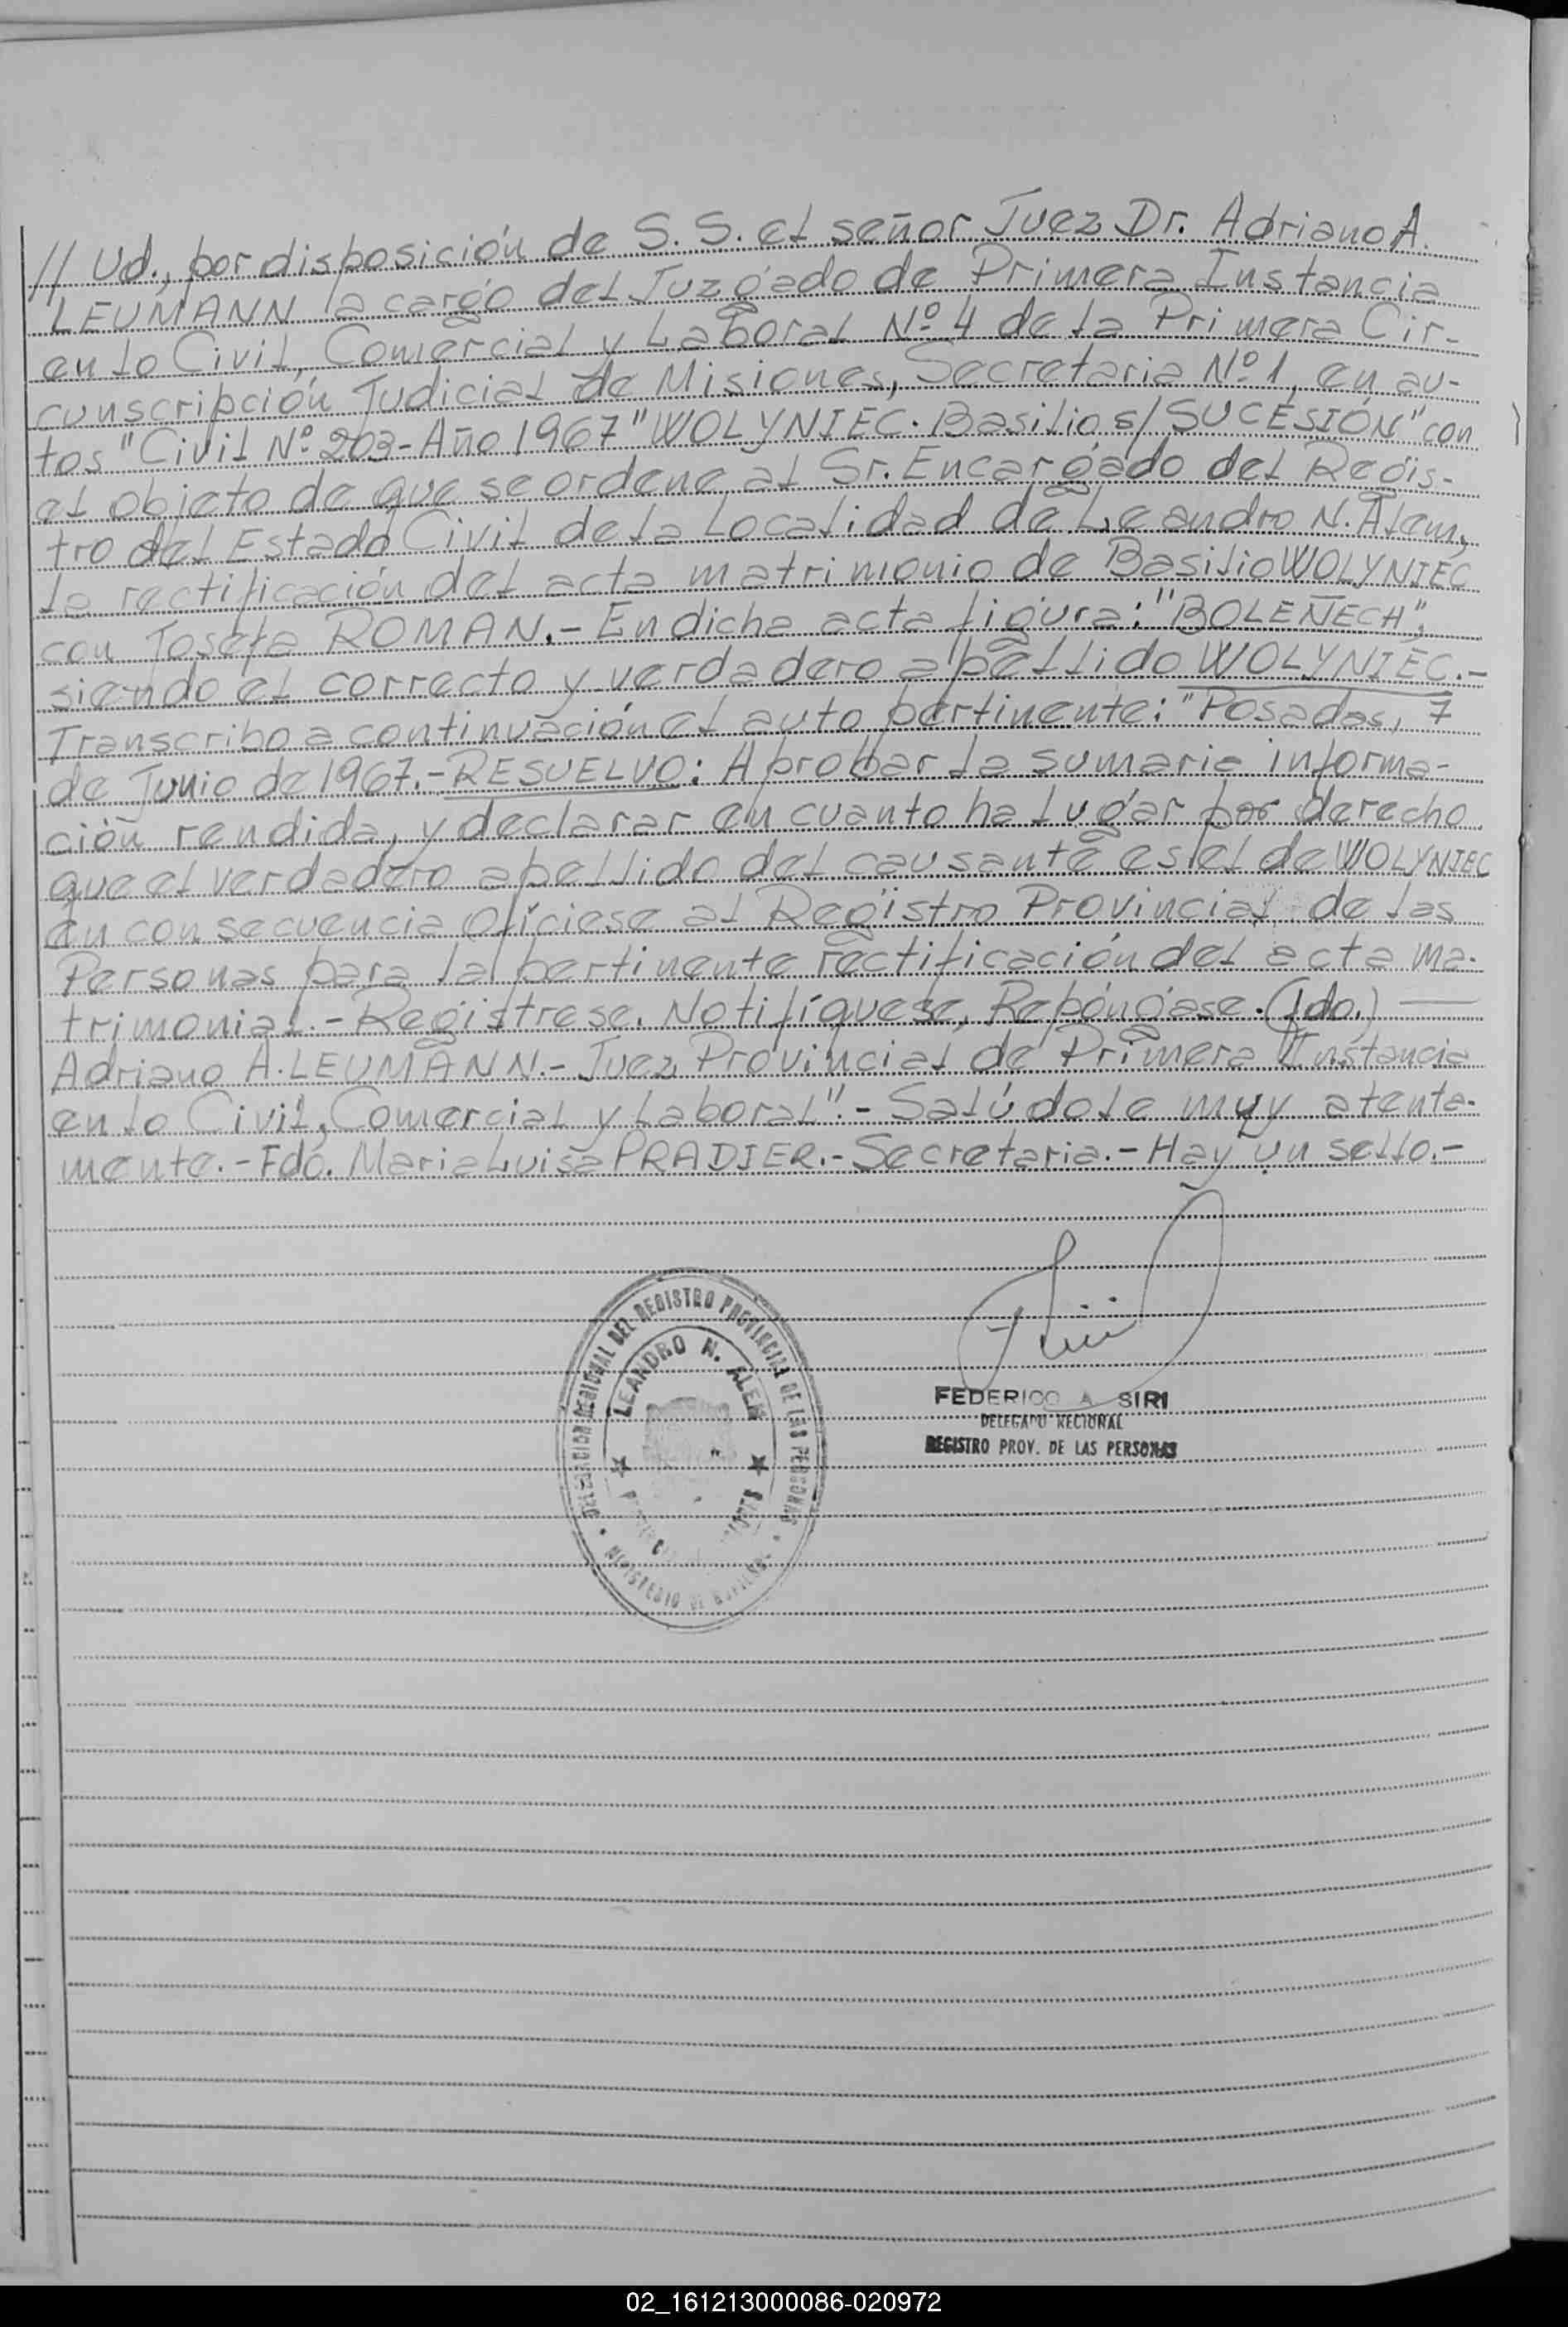 // Ud., por disposición de S. S. el señor Juez Dr. Adriano A.
LEUMANN a cargo del Juzgado de Primera Instancia
en lo Civil, Comercial y Laboral Nº 4 de la Primera Cir-
cunscripción Judicial de Misiones, Secretaria Nº 1, en au-
tos "Civil Nº 203-Año 1967" WOLYNIEC. Basilio s/ SUCESIÓN" con
el objeto de que se ordene al Sr. Encargado del Regis-
tro del Estado Civil de la Localidad de Leandro N. Alem,
la rectificación del acta matrimonio de Basilio WOLYNIEC
con Josefa ROMAN.- En dicha acta figura: "BOLEÑECH",
siendo el correcto y verdadero apellido WOLYNIEC.-
Transcribo a continuación el auto pertinente: "Posadas, 7
de Junio de 1967.- RESUELVO: Aprobar la sumaria informa-
ción rendida, y declarar en cuanto ha lugar por derecho
que el verdadero apellido del causante es el de WOLYNIEC
en consecuencia ofíciese al Registro Provincial de las
Personas para la pertinente rectificación del acta ma-
trimonial.- Registrese. Notifíquese, Repóngase. (fdo.)
Adriano A. LEUMANN.- Juez Provincial de Primera Instancia
en lo Civil, Comercial y Laboral".- Salúdole muy atenta-
mente.- Fdo. Maria Luisa PRADIER.- Secretaria.- Hay un sello.-
DELEGACION REGIONAL DEL REGISTRO PROVINCIAL DE LAS PERSONAS
LEANDRO N. ALEM
MINISTERIO DE
FEDERICO A SIRI
DELEGADO REGIONAL
REGISTRO PROV. DE LAS PERSONAS
02_161213000086-020972